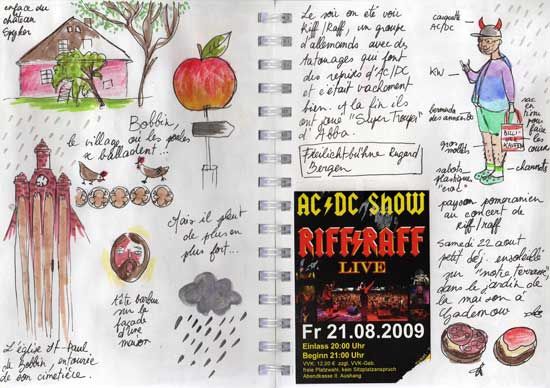 en face du
château
Spyker
Bobbin,
le village où les poules
se balladent...
Mais il pleut
de plus en
plus fort...
tête barbue
sur la
façade
d'une
maison
L'église St-Paul
de Bobbin, entourée
de son cimetière.
Le soir on été voir
Riff/Raff, un groupe
d'allemands avec des
tatouages qui font
des reprises d'AC/DC
et c'était vachement
bien. A la fin ils
ont joué "Super Trouper"
d'Abba.
Freilichtbühne Rugard
Bergen
AC/DC SHOW
RIFF/RAFF
LIVE
Fr 21.08.2009
Einlass 20:00 Uhr
Beginn 21:00 Uhr
VVK: 12,00 € zzgl. VVK-Geb.
freie Platzwahl, kein Sitzplatzanspruch
Abendkasse lt. Aushang
casquette
AC/DC
KW
bermuda
des années 80
gros
mollets
sabots
plastique
"croc"
sac
en tissu
pour
faire
les
courses
BILLI
KAUFEN
paysan poméranien
au concert de
Riff/raff
Samedi 22 aout
petit déj. ensoleillé
sur "notre terrasse"
dans le jardin de
la maison à
Gademow